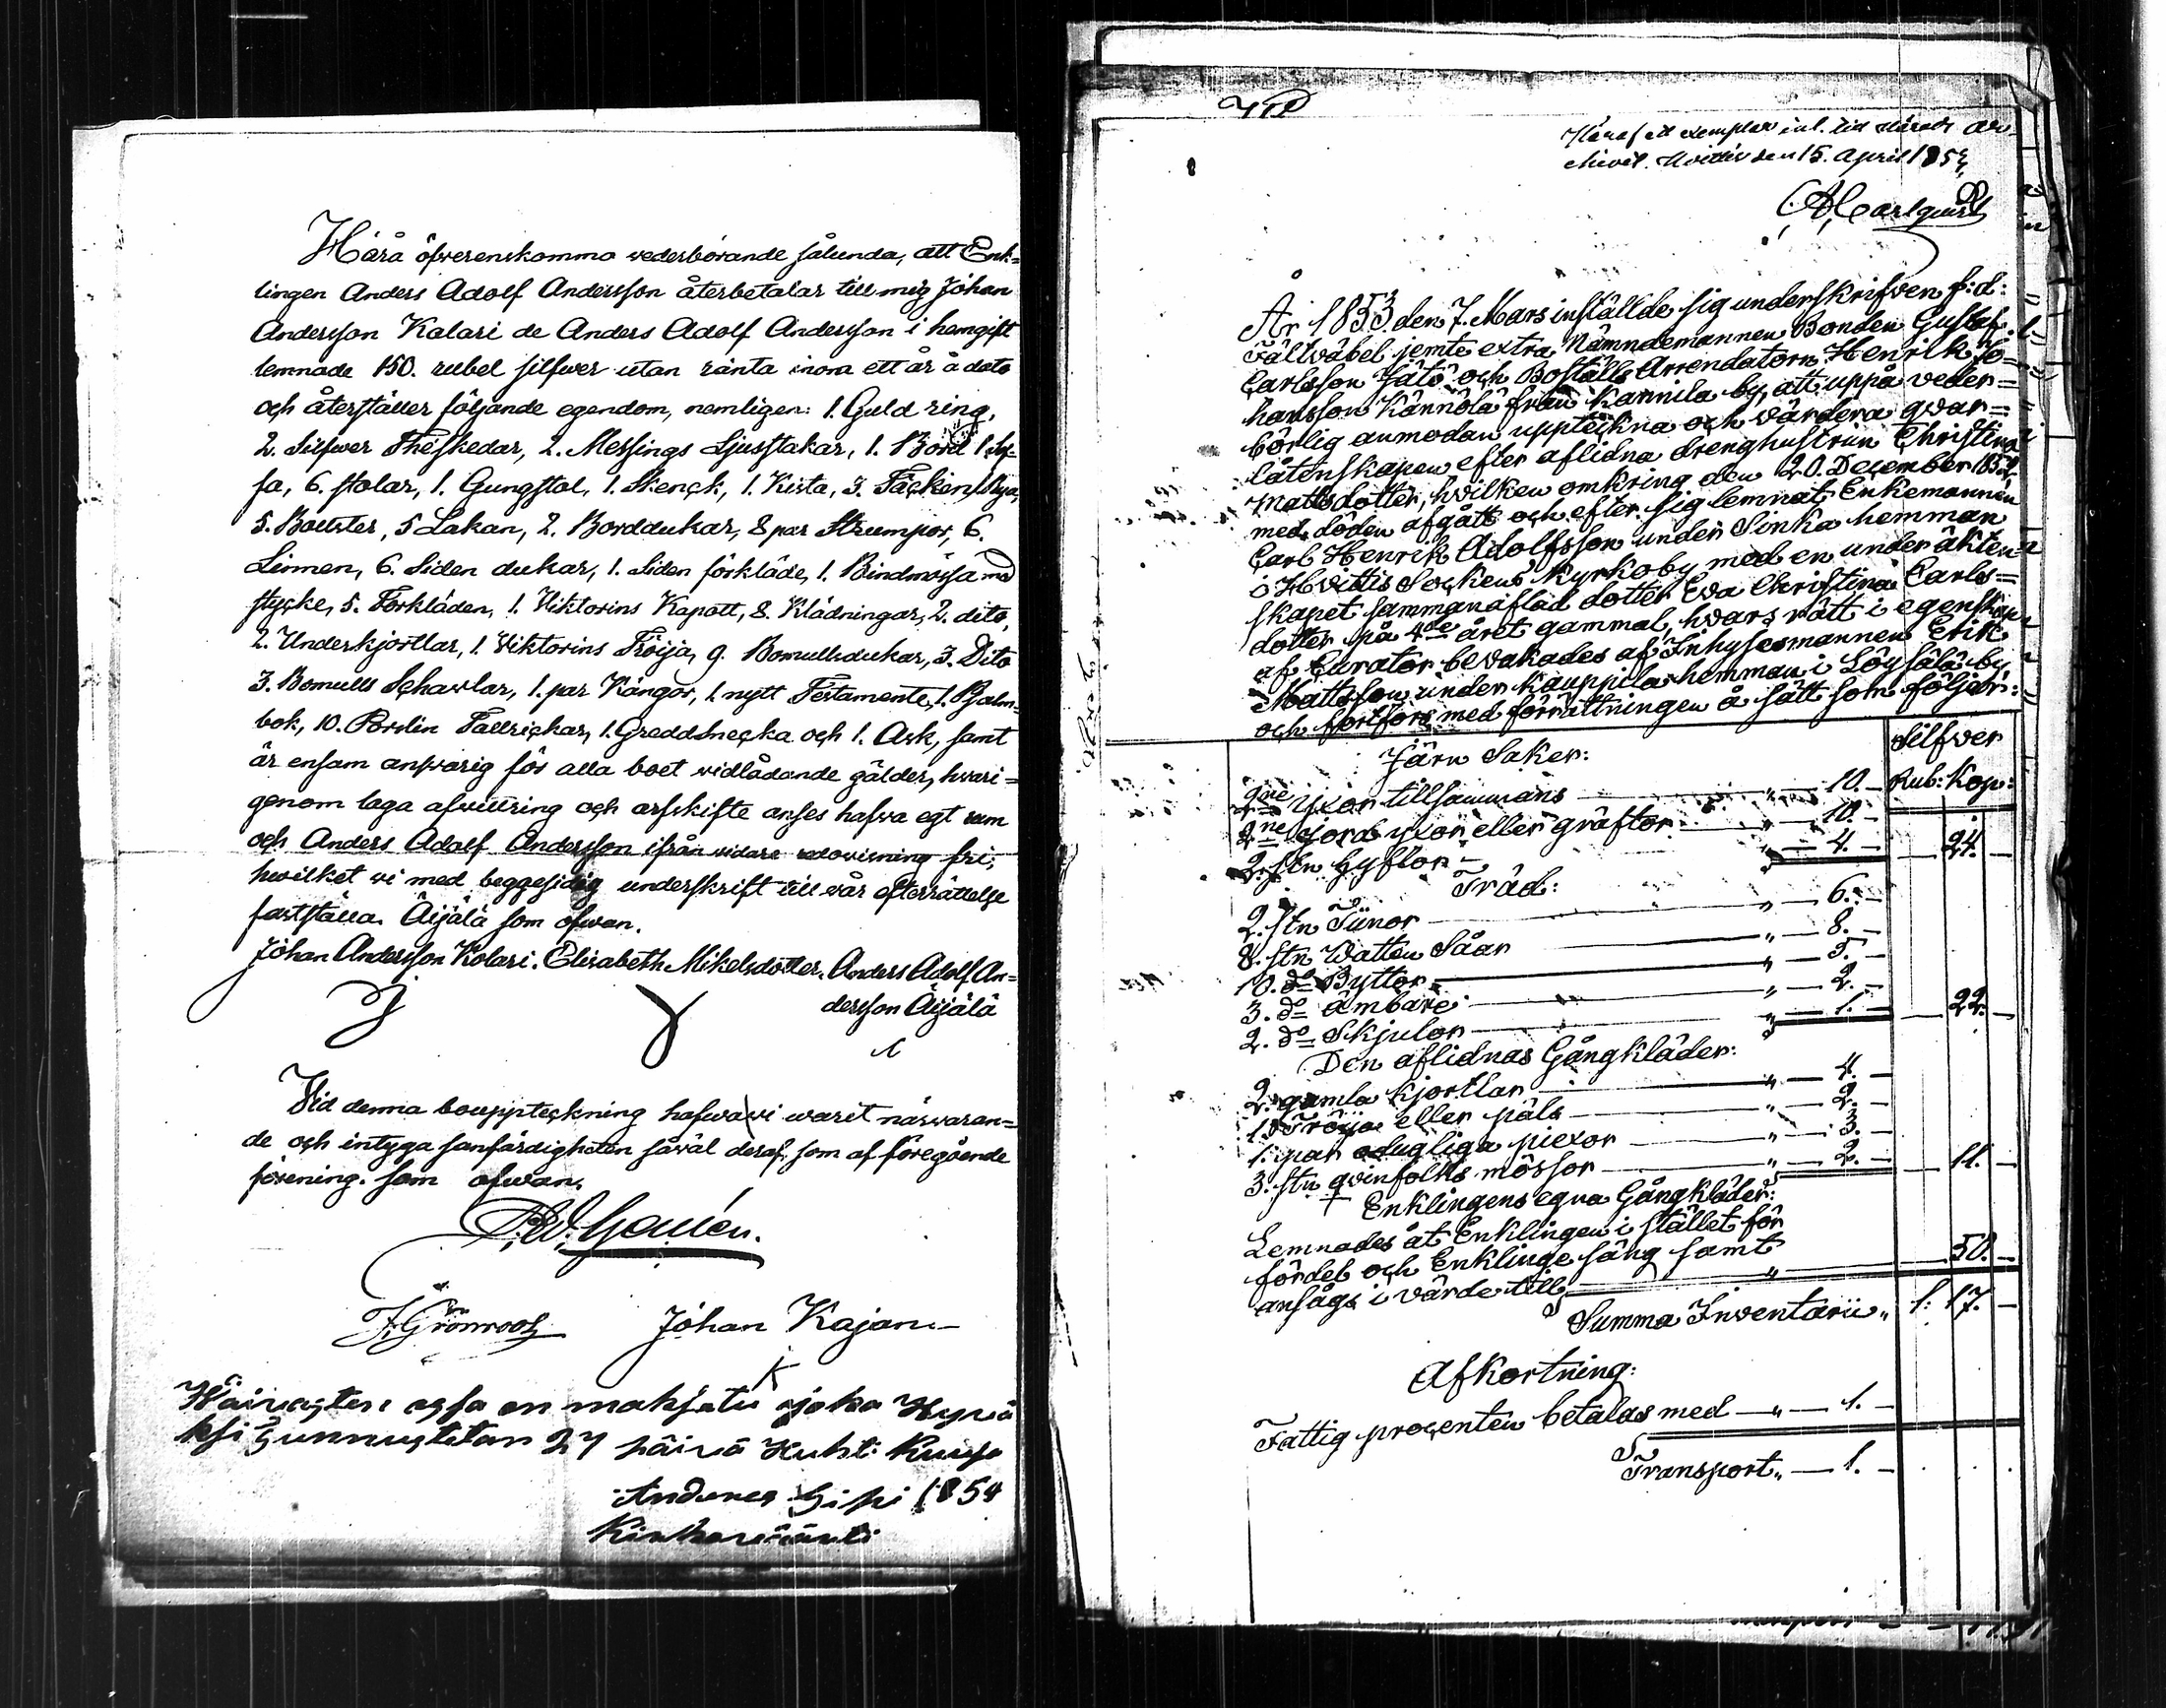 Härå öfwerenskommo wederbörande sålunda, att Enk=
lingen Anders Adolf Andersson återbetalar till mig Johan
Andersson Kolari de Anders Adolf Andersson i hemgift
lemnade 150. rubel silfwer utan ränta inom ett år à dato
och återställer följande egendom, nemligen: 1. Guld ring,
2. Silfwer Theskedar, 2. Messings Ljusstakar, 1. Bord 1 So=
fa, 6. stolar, 1. Gungstol, 1. Skenck, 1. Kista, 3. Täcken,
5. Bolster, 5 Lakan, 2. Borddukar, 8 par Strumpor, 6.
Linnen, 6. Siden dukar, 1. Siden förkläde, 1. Bindmössa med
stycke, 5. Förkläden, 1. Viktorins Kapott, 8. Klädningar, 2. dito,
2. Underkjortlar, 1. Viktorins Tröija, 9. Bomullsdukar, 3. Dito
3. Bomulls Schawlar, 1. par Kängor, 1. nytt Testamente, 1. Psalm=
bok, 10. Porslin Tallrickar, 1. Greddsnecka och 1. Ask, samt
är ensam answarig för alla boet widlådande gälder, hwari=
genom laga afwittring och arfskifte anses hafwa egt rum
och Anders Adolf Andersson ifrån widare redowisning fri;
hwilket wi med beggesidig underskrift till wår efterrättelse
fastställa. Äijälä som ofwan.
Johan Andersson Kolari. Elisabeth Mikelsdotter. Anders Adolf An=
dersson Äijälä
Vid denna bouppteckning hafwa wi warit närwaran=
de och intyga sanfärdigheten såwäl deraf, som af föregående
förening. som ofwan.
F. Grönroos Johan Kajan
ossa on maksetu joka
27 päivä Huhti Kuusa
1854
Häraf ett exemplar inl. till Härads Ar=
chivet. Hvittis den 15. April 1853,
Carlquist
År 1853. den 7. Mars inställde sig underskrifven f: d:
Fältväbel jemte extra Nämndemannen Bonden Gustaf
Carlsson Jätö och Boställs Arrendatorn Henrik Jo=
hansson Kännölä från Kannila by, att uppå veder=
börlig anmodan uppteckna och värdera qvar=
låtenskapen efter aflidna drenghustrun Christina
Mattsdotter, hvilken omkring den 20. December 1852.
med döden afgått och efter sig lemnat Enkemannen
Carl Henrik Adolfsson under Sinka hemman
i Hvittis Sockens Kyrkoby med en under äkten=
skapet sammanaflad dotter Eva Christina Carls=
dotter på 4de året gammal, hvars rätt i egenskap
af Curator bevakades af Inhysesmannen Erik
Mattsson under Kauppila hemman i Löysälä by
och fortfors med förrättningen å sätt som följer:
Silfver
Järn Saker: Rub: Kop:
2ne yxor tillsammans — " — 10. —
2ne jord yxor eller gräftor — " — 10. —
2. stn hyflor — " — 4. — 24. —
Träd:
2. stn Tünor — " — 6. —
8. stn Watten Såar — " — 8. —
10. do Byttor — " — 5. —
3. do Ämbare — " — 2. —
2. do Skjulor — " — 1. — 22. —
Den aflidnas Gångkläder:
2. gamla kjortlar — " — 4. —
1. Tröija eller päls — " — 2. —
1. par odugliga piexor — " — 3. —
3. stn qvinfolks mössor — " — 2. — 11. —
Enklingens egna Gångkläder:
Lemnades åt Enklingen i stället för
fördel och Enklinge säng samt
ansågs i värde till — " — 50. —
Summa Inventarii " 1: 17. —
Afkortning:
Fattig procenten betalas med — " — 1. —
Transport " — 1. —